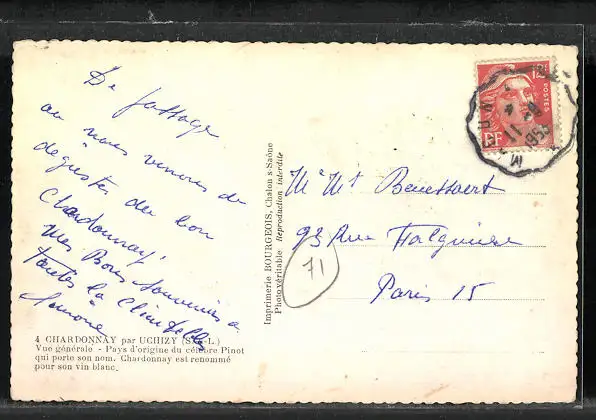 De passage
ou nous venons de
déguster du bon
Chardonnay,
mes Bons Souvenirs a
toutes la Clientelle
Simone
4 CHARDONNAY par UCHIZY (S.-L.)
Vue générale - Pays d'origine du célèbre Pinot
qui porte son nom. Chardonnay est renommé
pour son vin blanc.
Imprimerie BOURGEOIS, Chalon s-Saône
Photo véritable Reproduction interdite
12F
POSTES
RF
Mr Mt
93 Rue Falguière
71
Paris 15